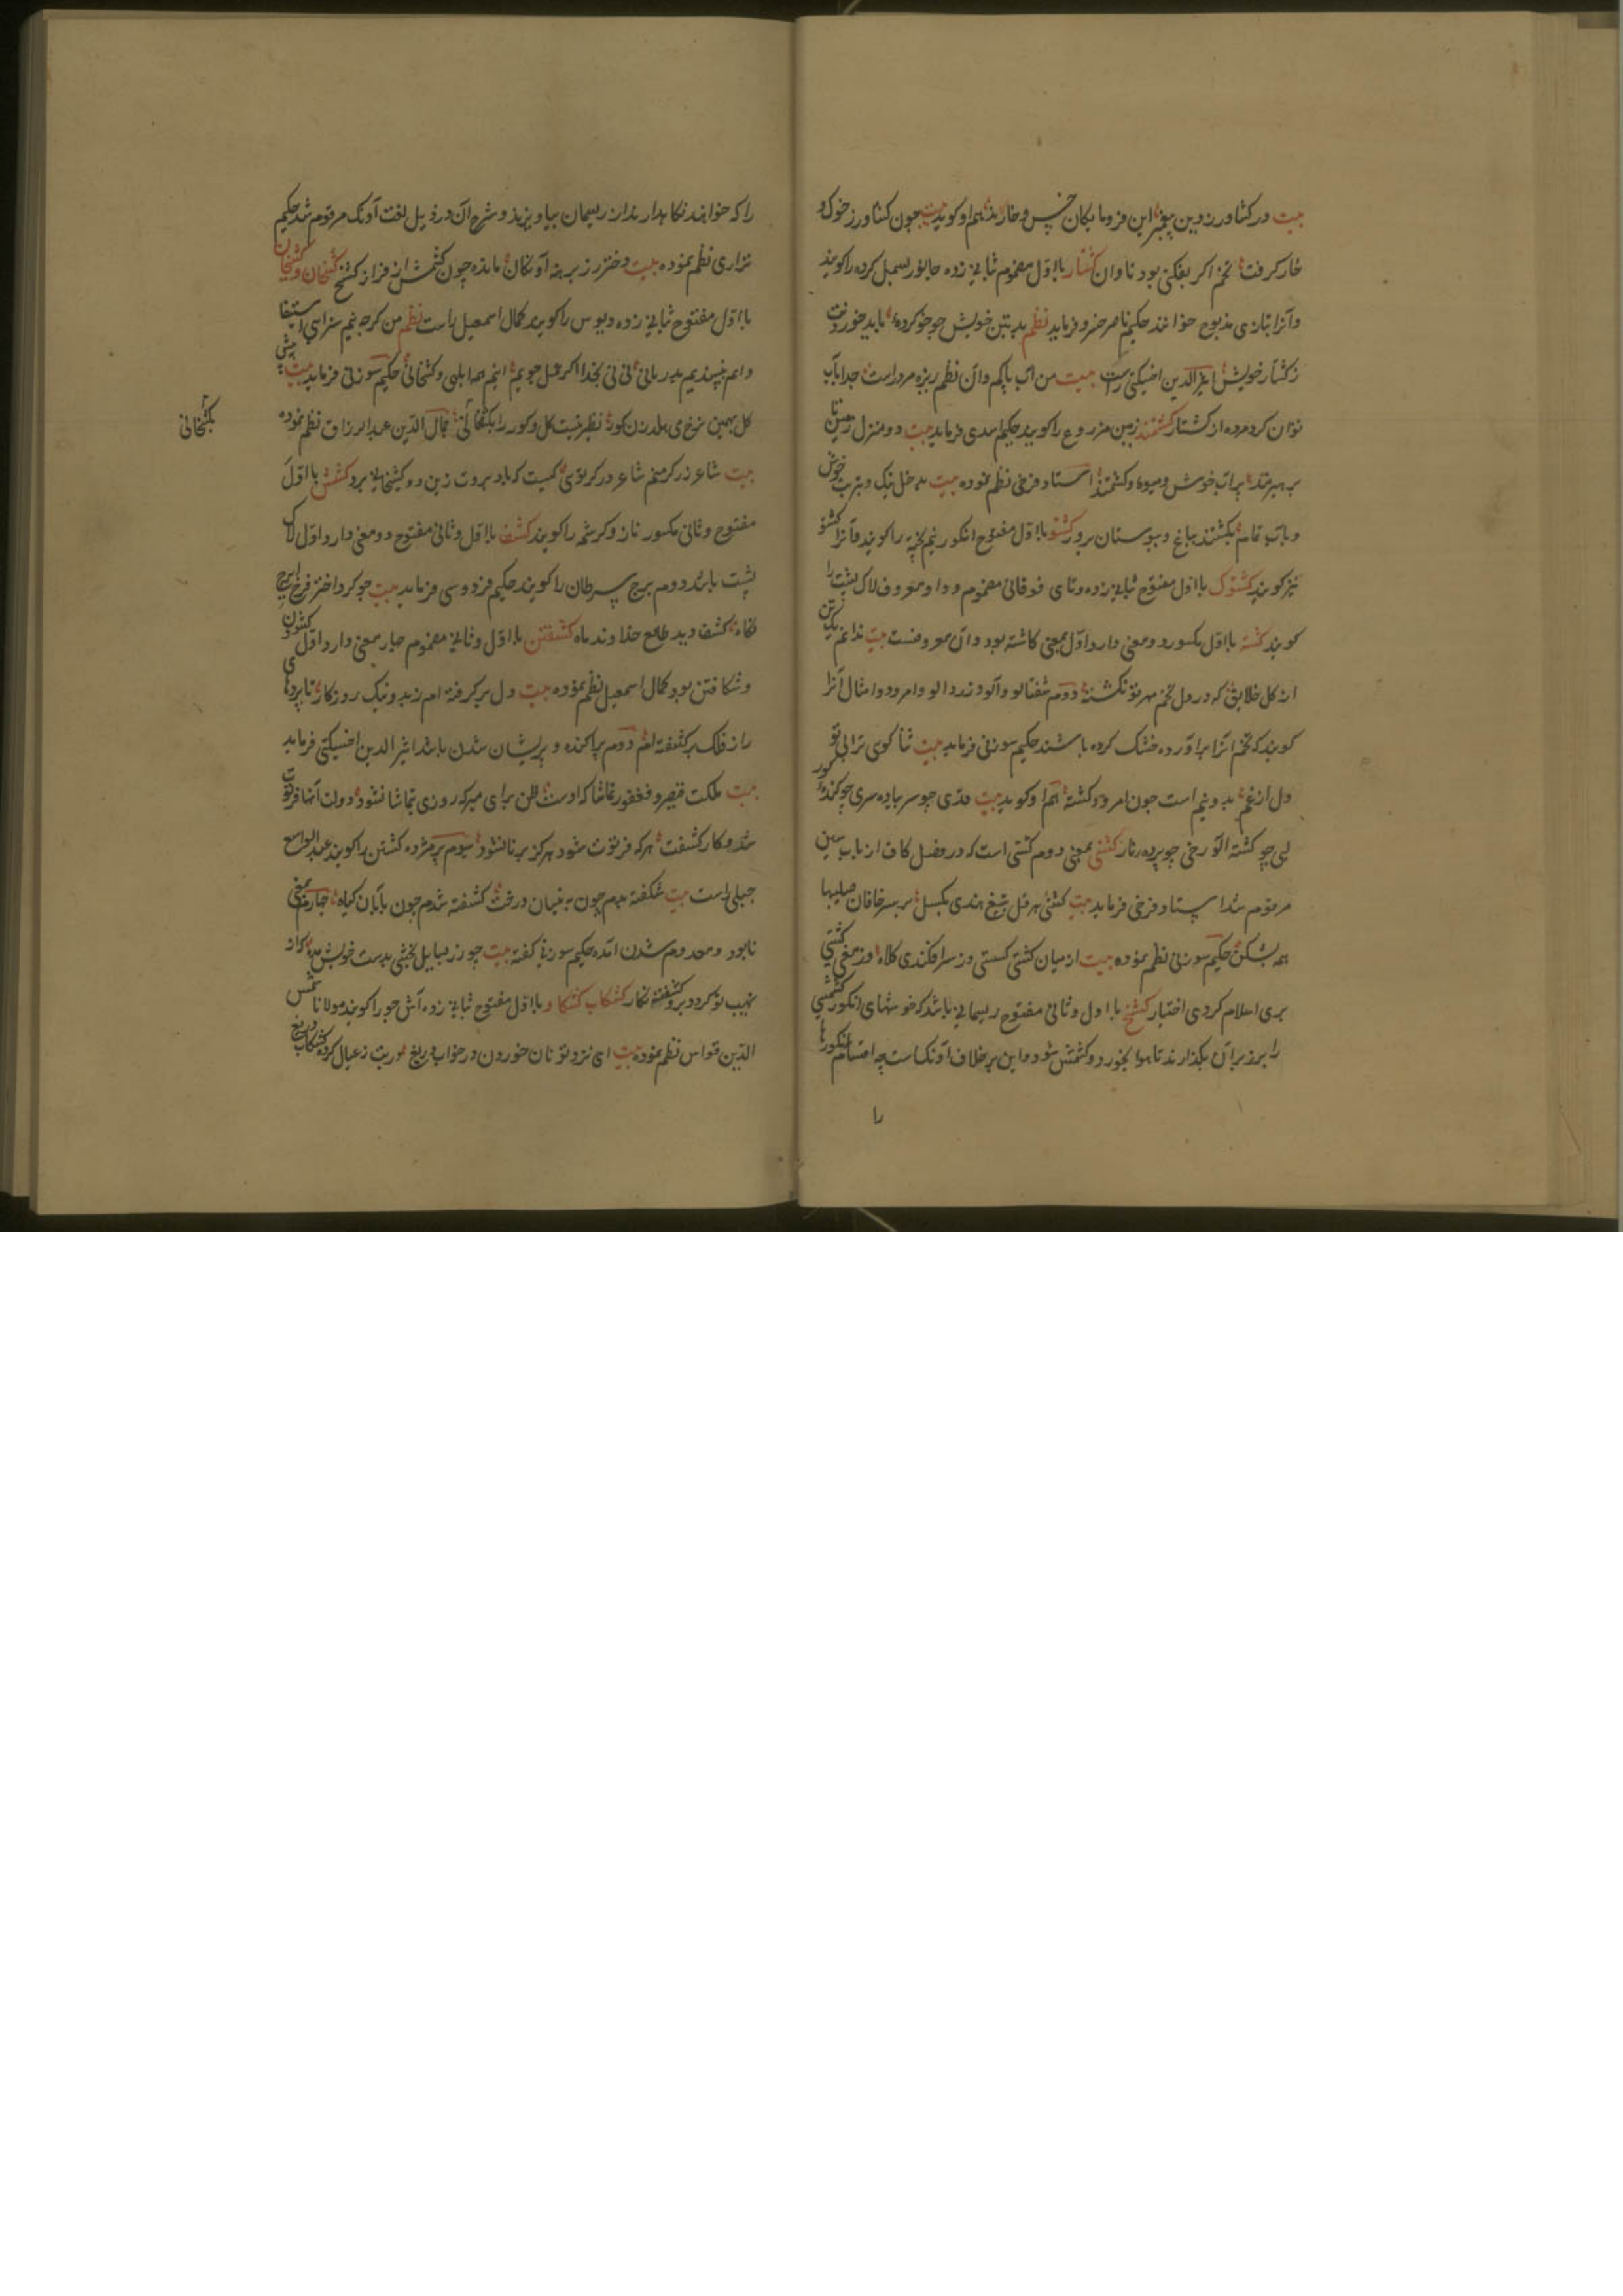 بیت در کشاورز دین پیغمبر این فرومایکان خس و خارند هم او کوید بیت چون کشاورز خوک و
خار کرفت تخم اکر بفکنی بود تاوان کشتار با اول مضموم ثبانی زده جانور بسمل کرده را کویند
و آنرا بتازی مذبوح خوانند حکیم ناصر خسرو فرماید نظم بدین خویش جو جو کرده باید خوردنت
ز کشتار خویش اثیر الدین اخسیکتی راست بیت من آب پاکم و آن نظم ریزه مردار است جدا بآب
توان کرد مرده از کشتار کشتمند زمین مزروع را کویند حکیم اسدی فرماید بیت دو منزل زمین تا
بر هیرمند بر آب خوش و میوه و کشتمند استاد فرخی نظم نموده بیت بدخل نیک و بترب خوش
و بآب تمام بکشتمند بباغ و ببوستان برور کشتو با اول مفتوح انکور نیم پخته را کویند و آنرا کشتو
نیز کویند کشتوک با اول مفتوح ثبانی زده و تای فوقانی مضموم و واو معروف لاک پشت را
کویند کشته با اول مکسور دو معنی دارد اول بمعنی کاشته بود و آن معروفست بیت ندانم یک تن
از کل خلایق که در دل تخم مهر تو نکشته دوم شفتالو و آلو و زردالو و امرود و امثال آنرا
کویند که تخم آنرا برآورده خشک کرده باشند حکیم سوزنی فرماید بیت ثنا کوی ترا بی تو
دل از غم بدو نیم است چون امرود کشته هم او کوید بیت قدی چو سر باده سری چو کنده کور
لبی چو کشته آلو رخی چو پرده نار کشتی بمعنی دوم کشتی است که در فصل کاف از باب سین
مرقوم شد استاد فرخی فرماید بیت کشتی هرقل بتیغ هندی بکسل بر سر خاقان صلیبها
همه بشکن حکیم سوزنی نظم نموده بیت از میان کشتی کستی وز سر افکندی کلاه وز مغی کشتی
بری اسلام کردی اختیار کشخ با اول و ثانی مفتوح ریسمانی باشد که خوشهای انکور کشمشی
را بر زبر آن بکذارند تا هوا بخورد و کشمش شود و این بر خلاف آونک است چه اقسام انکورها
را
را که خواهند نکاهدارند از ریسمان بیاویزند و شرح آن در ذیل لغت آونک مرقوم شد حکیم
نزاری نظم نموده بیت دختر رز برهنه آونکان مانده چون کشمش از فراز کشخ کشخان و کشیخان
با اول مفتوح ثبانی زده دیوس را کویند کمال اسمعیل راست نظم من کرچه نیم سزای استیفا
دانم نپسندیم بدربانی نی نی بخدا اکر عمل جویم اینهم همه ابلهی و کشخانی حکیم سوزنی فرماید بیت
کل بهین نرخ می بلد زن کور نظیر نیست کل و کور را بکشخانی جمال الدین عبد الرزاق نظم نموده
بکشخانی
بیت شاعر زرکر منم شاعر درکر توی کیست که باد بروت زین دو کشیخان برد کشش با اول
مفتوح و ثانی مکسور ناز و کرشمه را کویند کشف با اول و ثانی مفتوح دو معنی دارد اول لاک
پشت باشد دوم برج سرطان را کویند حکیم فردوسی فرماید بیت چو کرد اختر فرخ ایرج
نکاه کشف دید طالع خداوند ماه کشفتن با اول و ثانی مضموم چهار معنی دارد اول کشودن
و شکافتن بود کمال اسمعیل نظم نموده بیت دل برکرفته ام ز بد و نیک روزکار تا پردهای
راز فلک برکشفته ام دوم پراکنده و پریشان شدن باشد اثیر الدین اخسیکتی فرماید
بیت ملکت قیصر و فغفور تماشاکه اوست ظن برای میر که روزی بتماشا نشود دولت آنها فرتوت
شد و کار کشفت هرکه فرتوت شود هرکز برنا نشود سیوم پژمرده کشتن را کویند عبد الواسع
جبلی راست بیت شکفته بدم چون به نیسان درخت کشفته شدم چون بآبان کیاه چهارم بمعنی
نابود و معدوم شدن آمده حکیم سوزنی کفته بیت چو زر بسایل بخشی بدست خویش بده کز
نهیب تو کردد برو کشفته نکار کشکاب کشکاو با اول مفتوح ثبانی زده آش جو را کویند مولانا شمس
الدین قواس نظم نموده بیت ای نزد تو نان خوردن در خواب دریغ شربت ز عیال کرده کشکاب دریغ